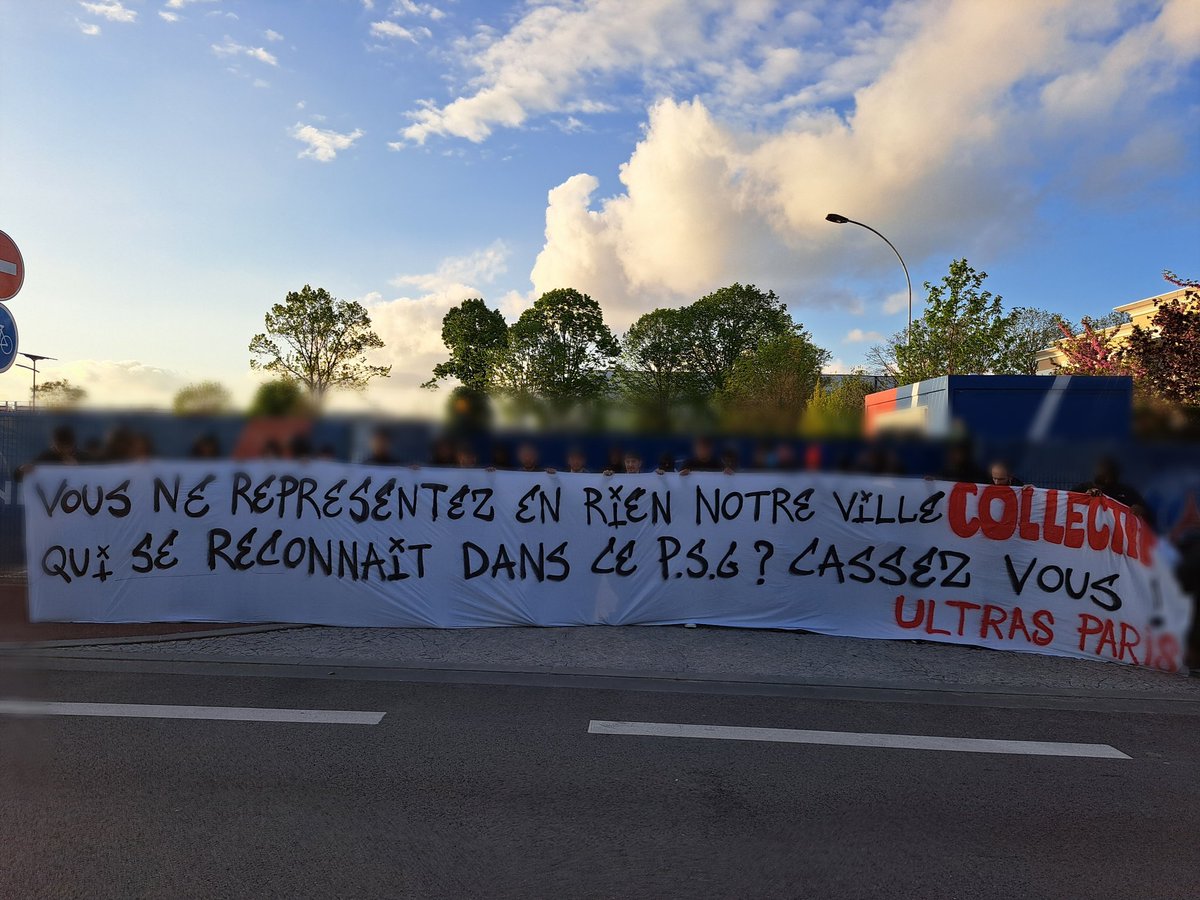 VOUS NE REPRESENTEZ EN RIEN NOTRE VILLE COLLECTIF
QUI SE RECONNAIT DANS CE P.S.G ? CASSEZ VOUS
ULTRAS PARIS